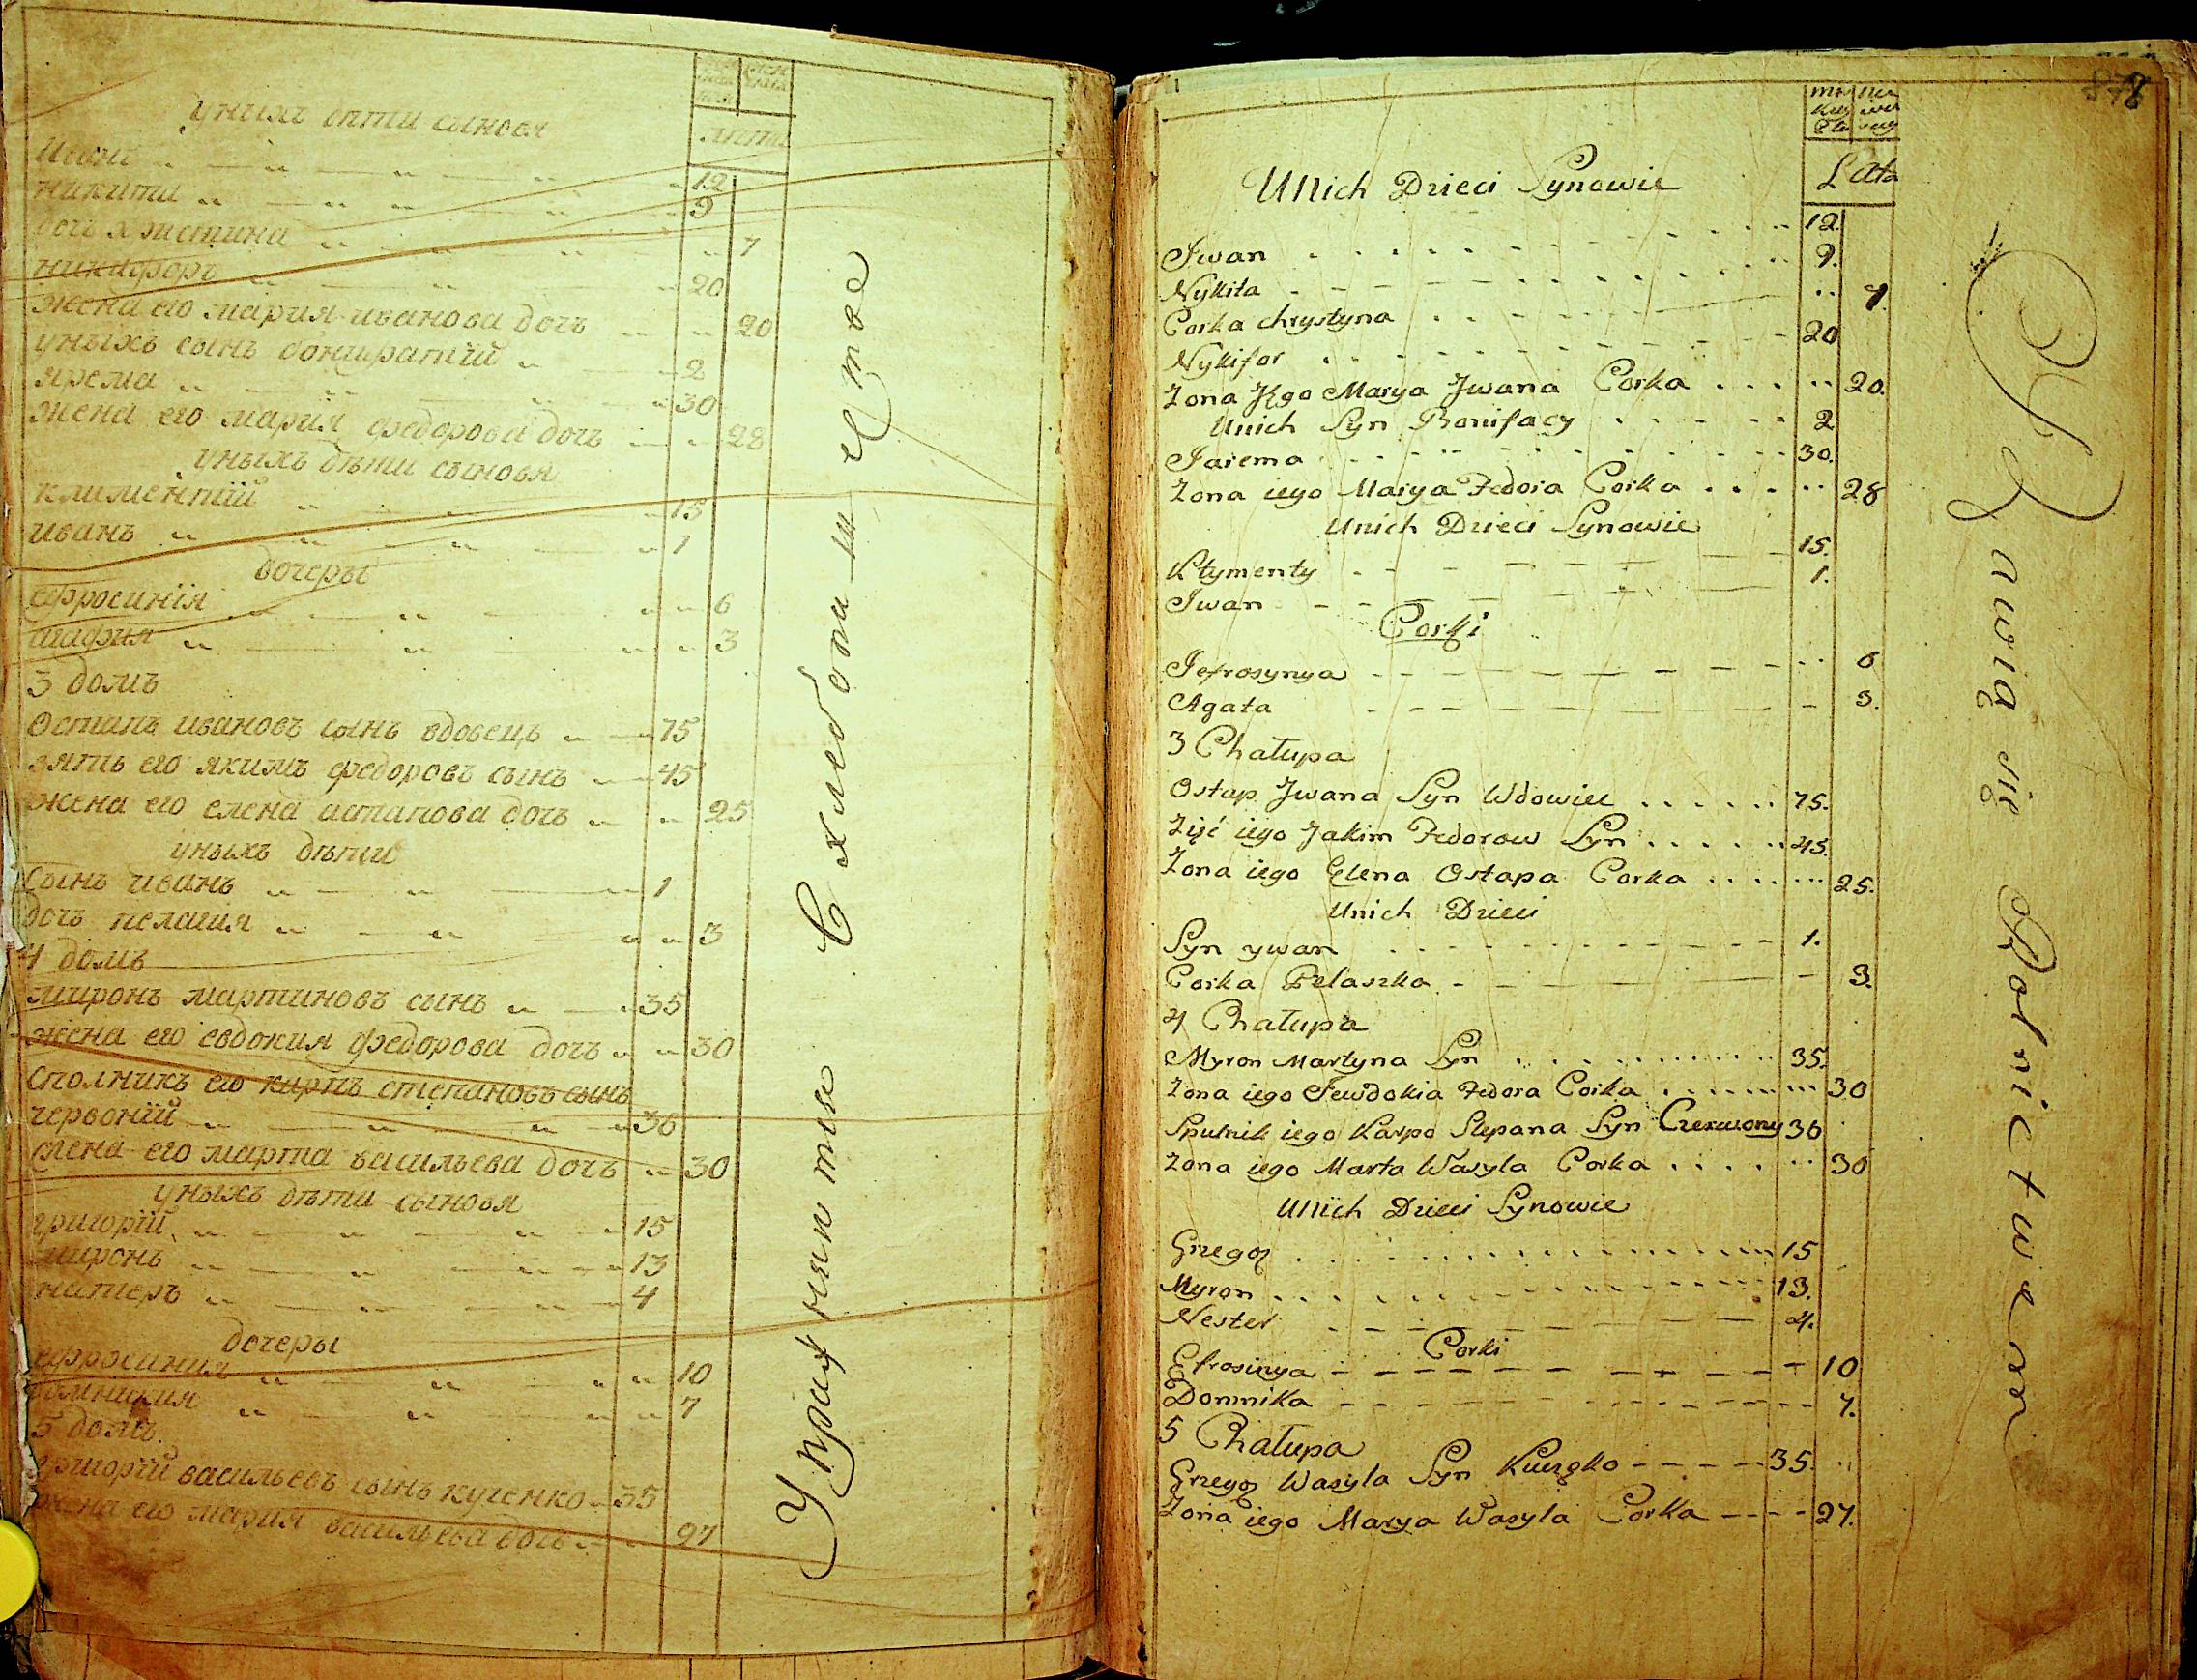 уныхъ дѣти сыновя
лѣта
иванъ 12
никита 9
дочъ христина 7
никифоръ 20
жена его мария иванова дочъ 20
уныхъ сынъ бонифатий 2
ярема 30
жена его мария федорова дочъ 28
уныхъ дѣти сыновя
климентій 15
иванъ 1
дочеры
ефросинія 6
агафия 3
3 домъ
Остапъ ивановъ сынъ вдовецъ 75
зять его якимъ федоровъ сынъ 45
жена его елена астапова дочъ 25
уныхъ дѣти
сынъ иванъ 1
дочъ пелагия 3
4 домъ
миронъ мартиновъ сынъ 35
жена его евдокия федорова дочъ 30
сполникъ его карпъ степановъ сынъ
червоній 36
жена его марта васильева дочъ 30
уныхъ дѣти сыновя
григорій 15
миронъ 13
нестеръ 4
дочеры
ефросиния 10
домникия 7
5 домъ
григорій васильевъ сынъ кученко 35
жена его мария васильева дочъ 27
Упражняются Хлебопашеством
878
Lata
Unich Dzieci Synowie
Iwan 12.
Nykita 9.
Corka chrystyna 7.
Nykifor 20
Zona Jego Marya Jwana Corka 20.
Unich Syn Bonifacy 2
Jarema 30.
Zona iego Marya Fedora Corka 28
Unich Dzieci Synowie
Klymenty 15.
Iwan 1.
Corki
Jefrosynya 6
Agata 3.
3 Chałupa
Ostap Jwana Syn Wdowiec 75.
Zięć iego Jakim Fedorow Syn 45.
Zona iego Elena Ostapa Corka 25.
Unich Dzieci
Syn ywan 1.
Corka Pelaszka 3.
4 Chałupa
Myron Martyna Syn 35.
Zona iego Jewdokia Fedora Corka 30
Spulnik iego Karpo Stepana Syn Czerwony 36
Zona iego Marta Wasyla Corka 30
Unich Dzieci Synowie
Grzegoz 15
Myron 13.
Nester 4.
Corki
Efrosinya 10
Domnika 7.
5 Chałupa
Grzegoz Wasyla Syn Kuczęko 35.
Zona iego Marya Wasyla Corka 27.
Bawią się Rolnictwem